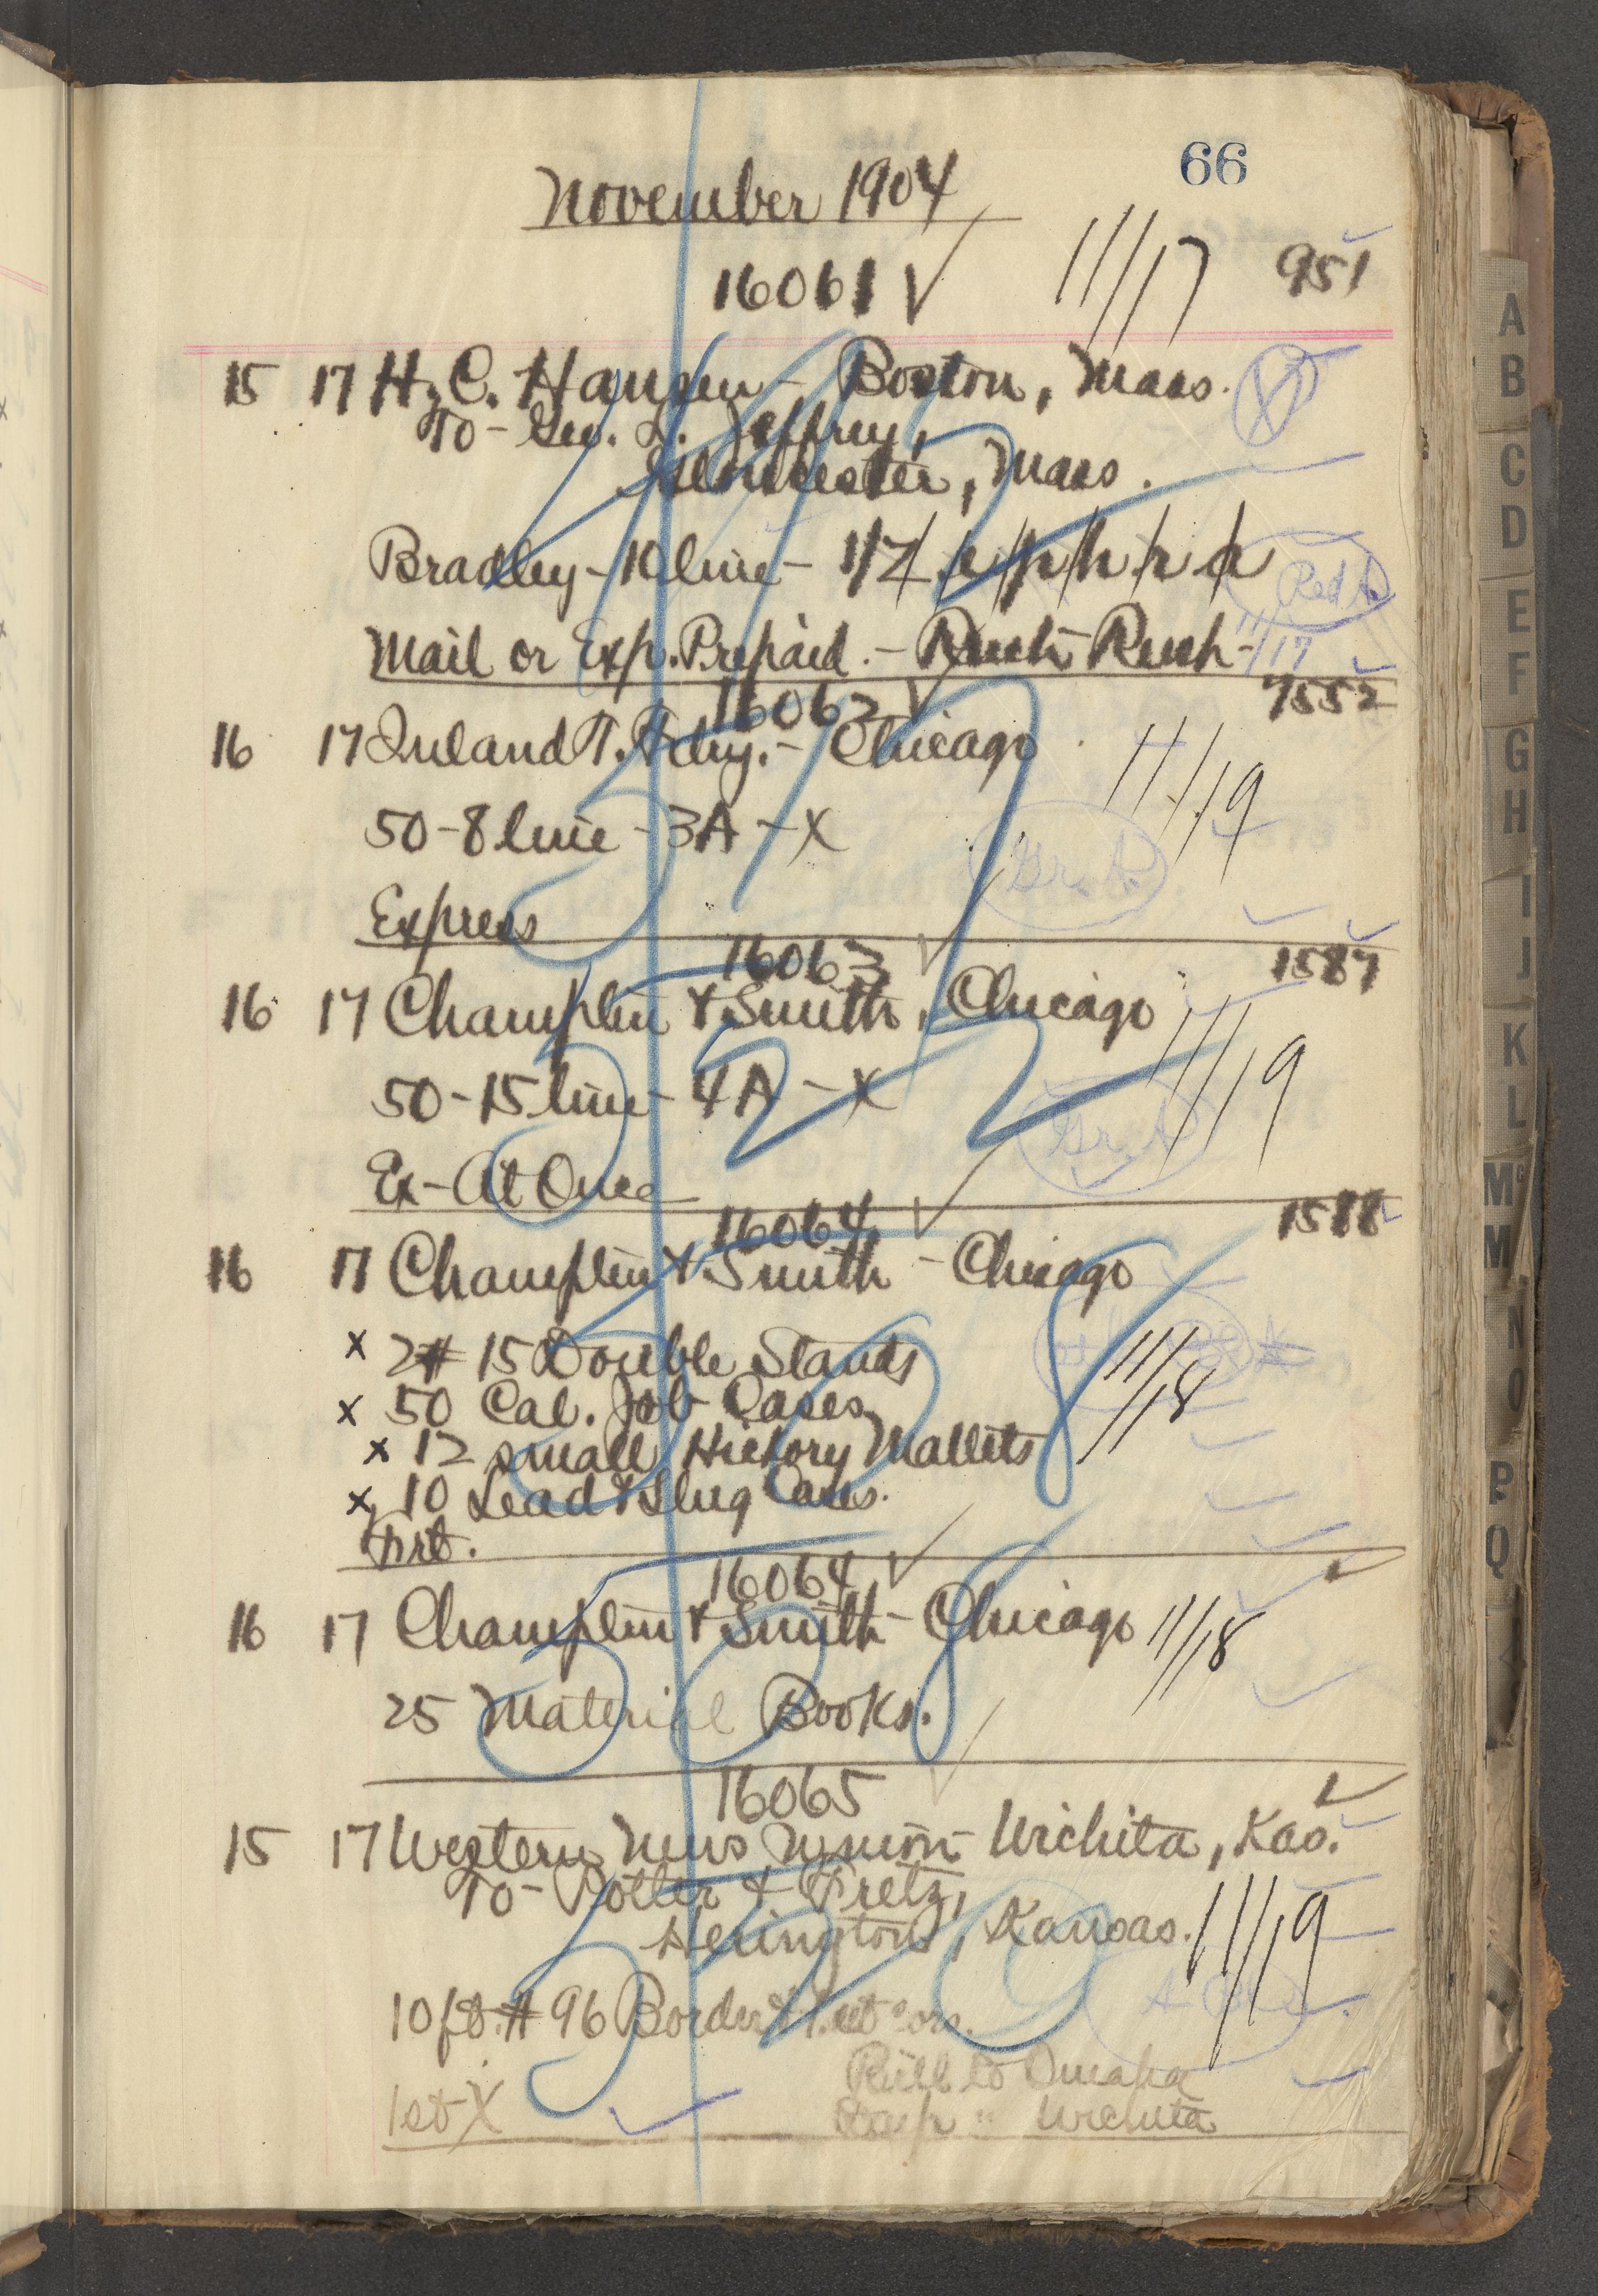 66
November 1904
16061 ✓ 11/17 951
15 17 H. C. Hansen - Boston, Mass.
To - Geo. L. Jeffrey,
Gloucester, Mass.
Bradley - 10 line - 1/Z/e/p/h/r/a
Red A.
Mail or Exp. Prepaid. - Rush Rush - 11/17
16062 ✓ 7552
16 17 Inland T. Fdry. - Chicago 11/19
50 - 8 line - 3A - X
Gr. A.
Express
16063 ✓ 1587
16 17 Champlin & Smith, Chicago 11/19
50 - 15 line - 4A - X
Gr. A
Ex - At Once
16064 ✓ 1588
16 17 Champlin & Smith - Chicago
x 2 # 15 Double Stands 11/18
x 50 Cal. Job Cases
x 12 small Hickory Mallets
x 10 Lead & Slug Cases.
Frt.
16064 ✓
16 17 Champlin & Smith - Chicago 11/18
25 Material Books.
16065 ✓
15 17 Western News Union - Wichita, Kas.
To - Potter & Fretz,
Herington, Kansas. 11/19
10 ft. # 96 Border
Bill to Omaha
1st X " Wichita
A
B
C
D
E
F
G
H
I
J
K
L
Mc
M
N
O
P
Q